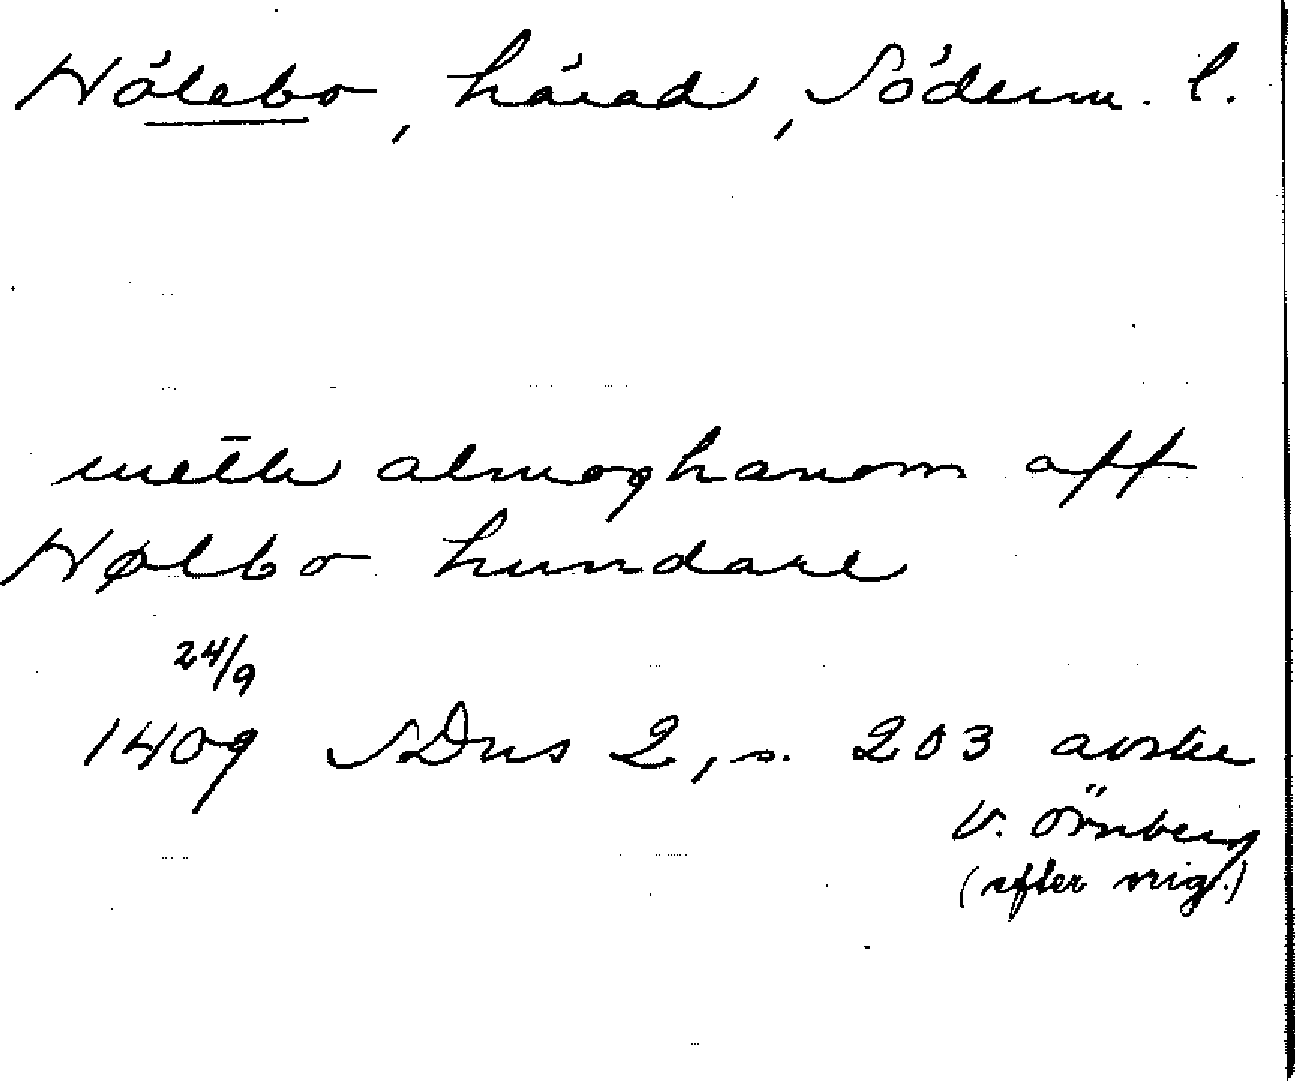 Hölebo, härad, Söderm. l.
meth almoghanom aff
Hølbo hundare
24/9
1409 SDns 2, s. 203 avskr
V. Örnberg
(efter orig.)